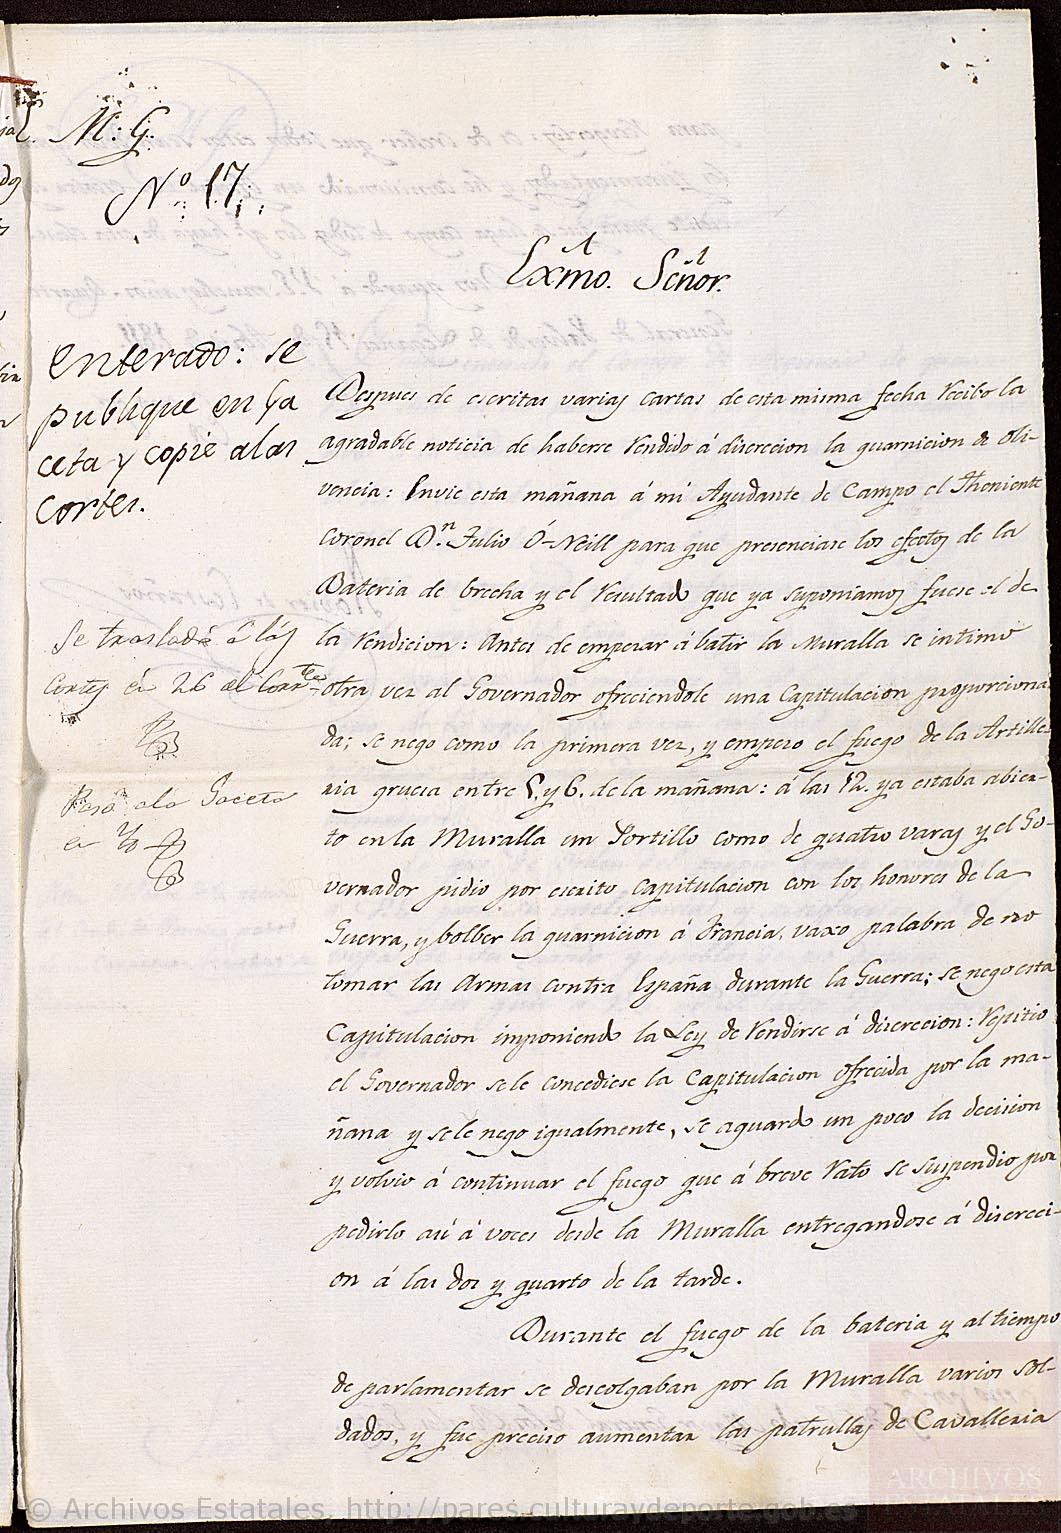 M. G.
Nº 17.
Exmo. Señor.
enterado: se
publique en Ga
ceta y copie alas
Cortes.
Se traslada á las
Cortes en 26 del Corrte
Pasa ala Gaceta
en
Despues de escritas varias cartas de esta misma fecha recibo la
agradable noticia de haberse rendido á discrecion la guarnicion de Oli-
vencia: Invie esta mañana á mi Ayudante de Campo el Theniente
Coronel Dn. Julio O-Neill para que presenciase los efectos de la
Bateria de brecha y el resultado que ya suponiamos fuese el de
la rendicion: Antes de empezar á batir la Muralla se intimo
otra vez al Governador ofreciendole una Capitulacion proporciona
da; se nego como la primera vez, y empezo el fuego de la Artille-
ria gruesa entre 5. y 6. de la mañana: á las 12. ya estaba abier-
to en la Muralla un Portillo como de quatro varas y el Go-
vernador pidio por escrito capitulacion con los honores de la
Guerra, y bolber la guarnicion á Francia, vaxo palabra de no
tomar las Armas contra España durante la Guerra; se nego esta
Capitulacion imponiendo la Ley de rendirse á discrecion: repitio
el Governador se le concediese la Capitulacion ofrecida por la ma-
ñana y se le nego igualmente, se aguardo un poco la decision
y volvio á continuar el fuego que á breve rato se suspendio por
pedirlo asi á voces desde la Muralla entregandose á discreci-
on á las dos y quarto de la tarde.
Durante el fuego de la bateria y al tiempo
de parlamentar se descolgaban por la Muralla varios sol-
dados, y fue preciso aumentar las patrullas de Cavalleria
ARCHIVOS
© Archivos Estatales, http://pares.culturaydeporte.gob.es